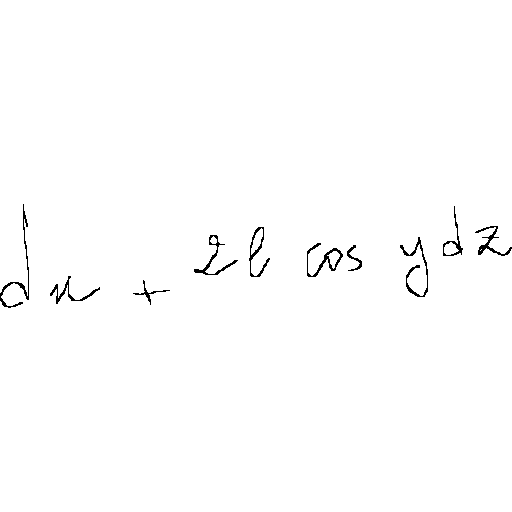 dx + 2l cos y dz